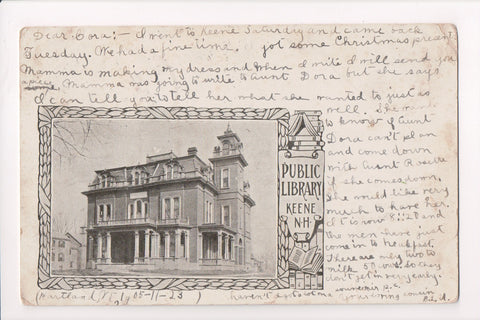 Dear Cora:- I went to Keene Saturday and came back
Tuesday. We had a fine time. I got some Christmas present
Mamma is making my dress and when I write I will send you
a piece. Mamma was going to write to Aunt Dora but she says
I can tell you to tell her what she wanted to just as
well. She wants
to know if Aunt
Dora can't plan
and come down
with Aunt
if she comes down,
she would like very
much to have her.
It is now 8:20 and
the men have just
come in to breakfast.
There are only two to
milk 30 cows so they
don't get in very early.
PUBLIC
LIBRARY
KEENE
N.H.
1905-11-23
haven't
your loving cousin